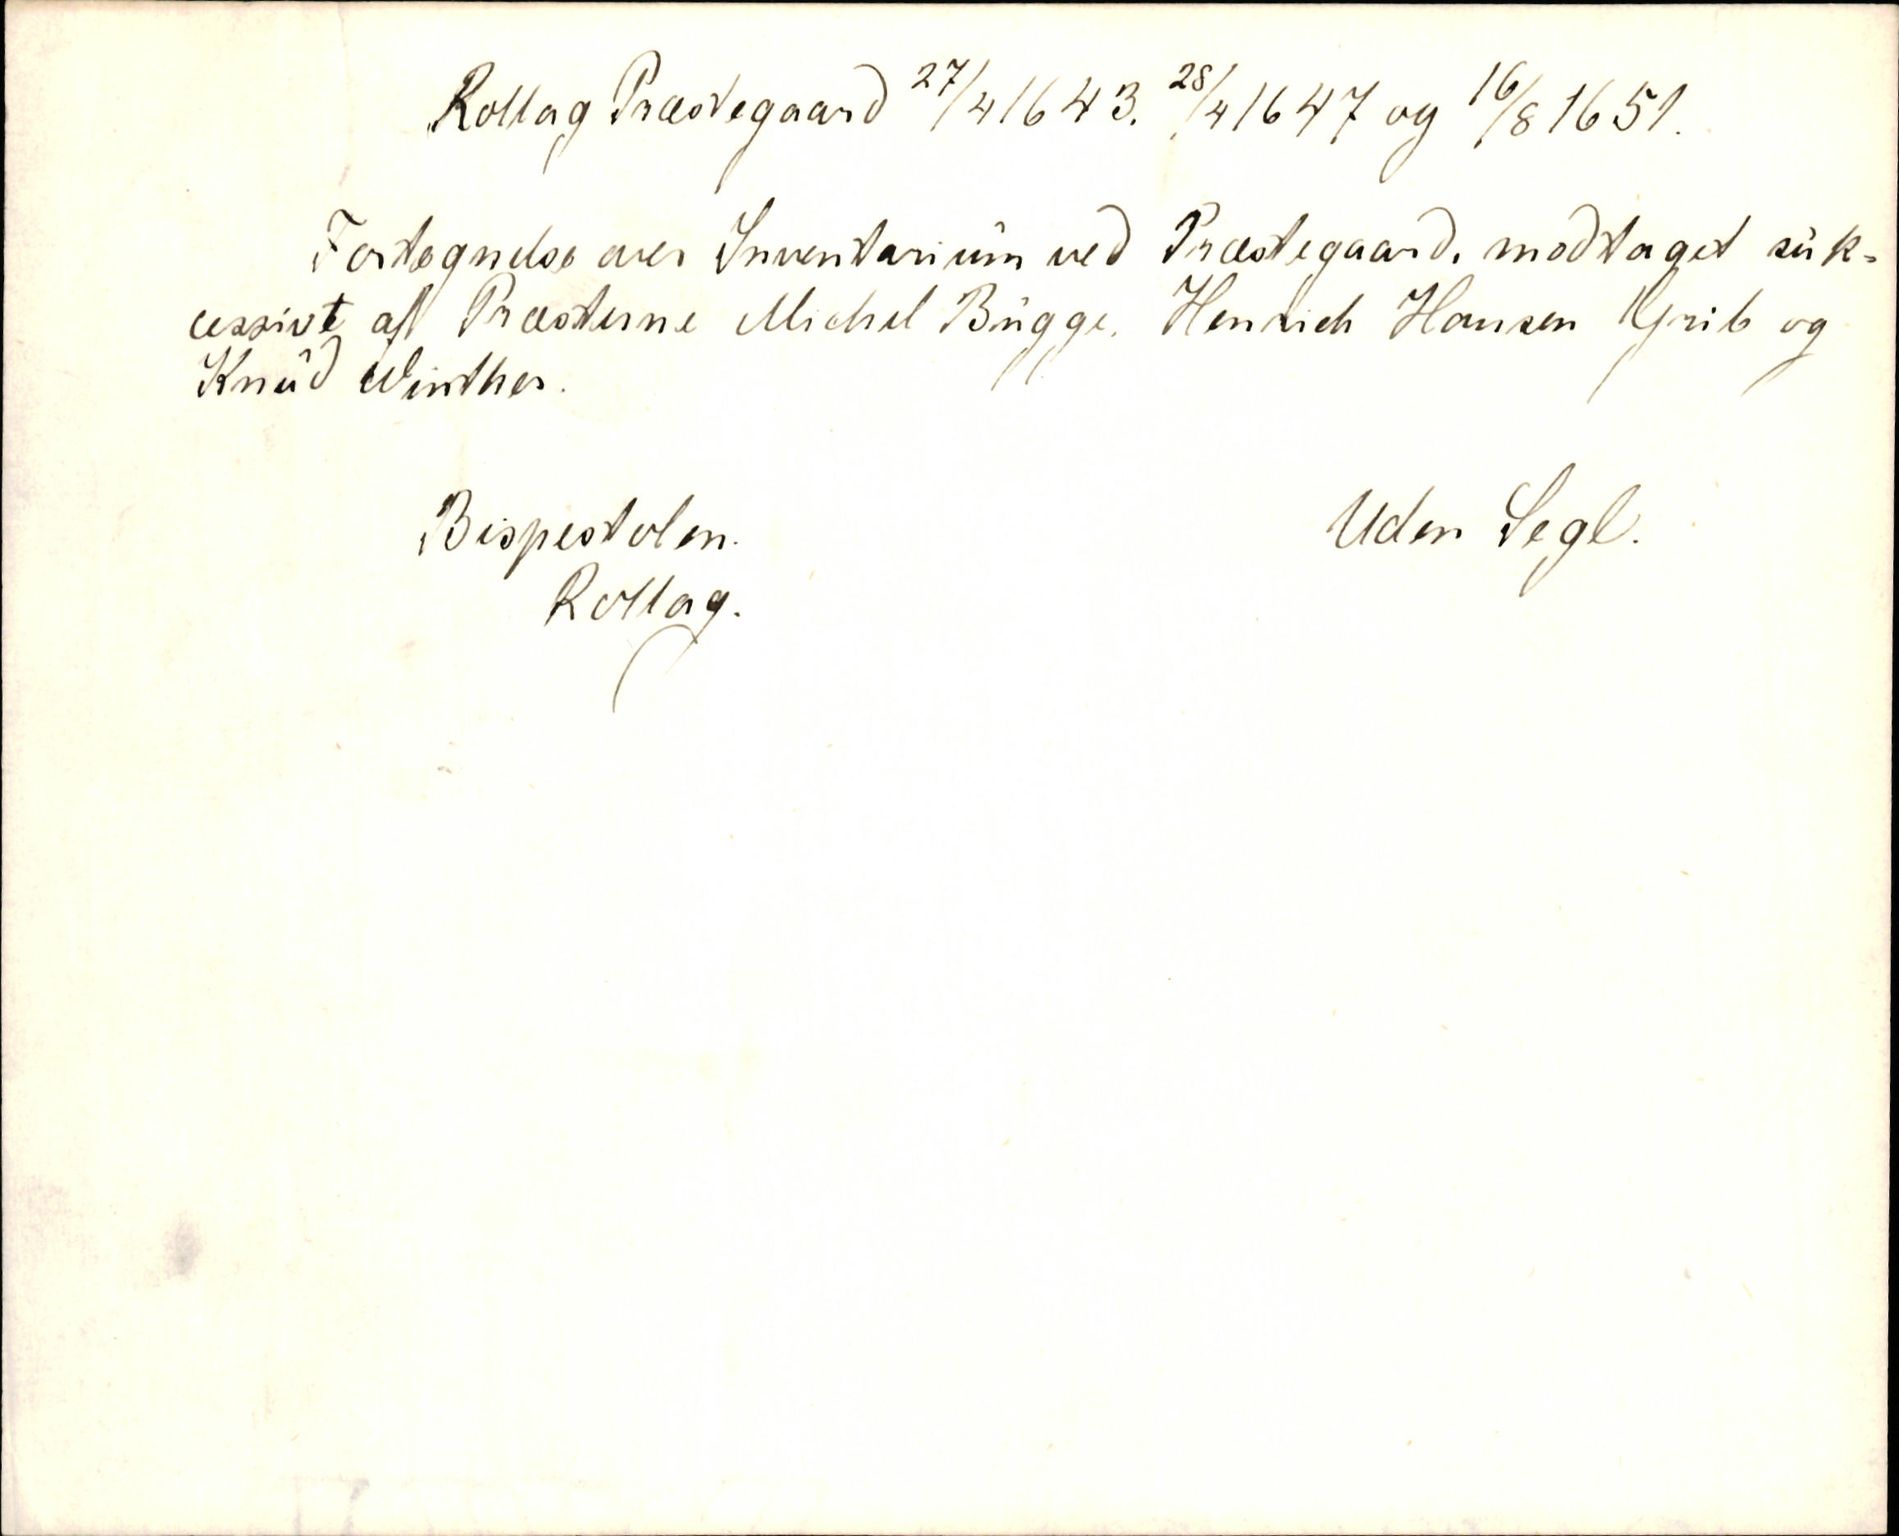 Rollag Præstegaard 27/4 1643. 28/4 1647 og 16/8 1651.
Fortegnelse over Inventarium ved Præstegaard, modtaget suk-
cessivt af Præsterne Michel Bugge, Henrich Hansen Grib og
Knud Winther.
Bispestolen. Uden Segl.
Rollag.